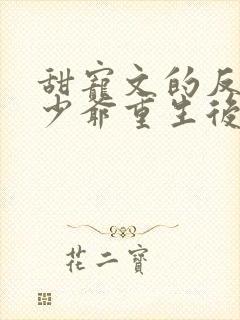 甜寵文的反
少爺重生後
花二寶